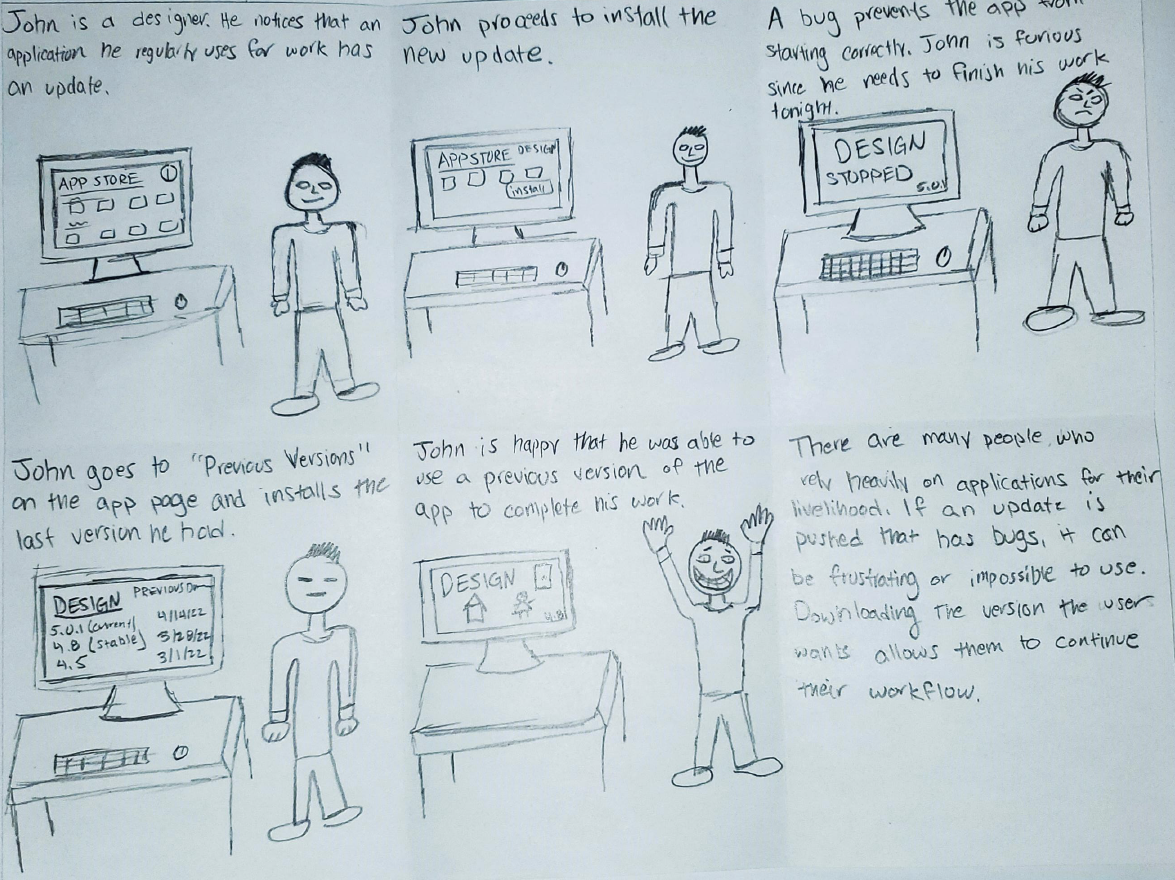 John is a designer. He notices that an
application he regularly uses for work has
an update.
APP STORE
John proceeds to install the
new update.
APPSTORE DESIGN
install
A bug prevents the app from
starting correctly. John is furious
since he needs to finish his work
tonight.
DESIGN
STOPPED
5.0.1
John goes to "Previous Versions"
on the app page and installs the
last version he had.
DESIGN
5.0.1 (current) 4/14/22
4.8 (stable) 3/28/22
4.5 3/1/22
John is happy that he was able to
use a previous version of the
app to complete his work.
DESIGN
4.8
There are many people who
rely heavily on applications for their
livelihood. If an update is
pushed that has bugs, it can
be frustrating or impossible to use.
Downloading the version the user
wants allows them to continue
their workflow.